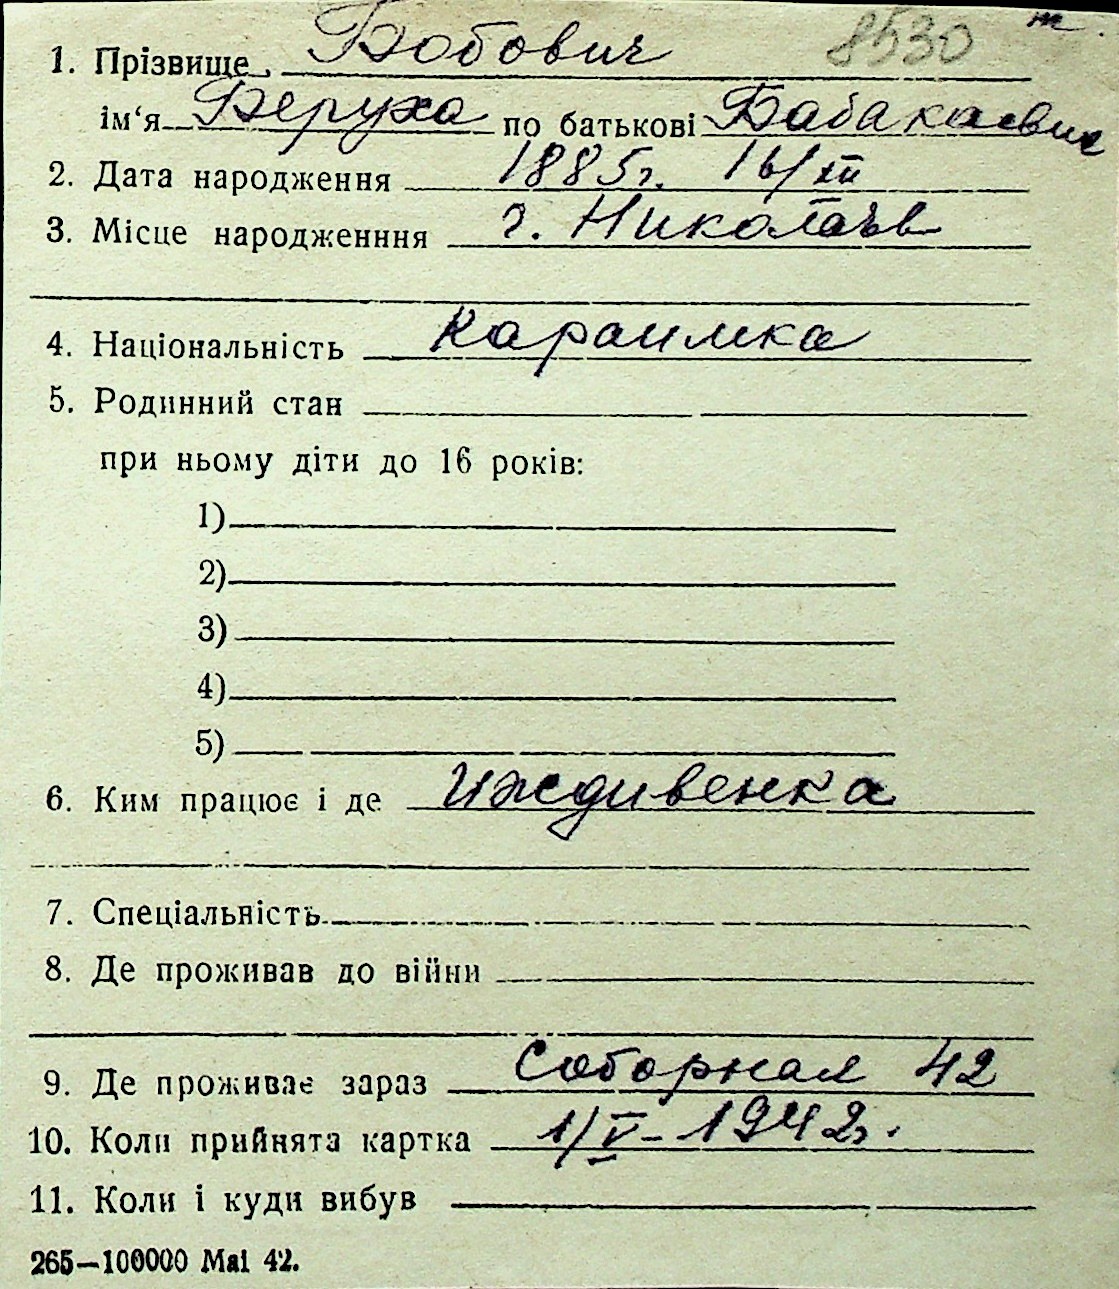 8530 т.
1. Прізвище Бобович
ім‘я Беруха по батькові Бабакаевич
2. Дата народження 1885г. 16/III
3. Місце народженння г. Николаев
4. Національність Караимка
5. Родинний стан
при ньому діти до 16 років:
1)
2)
3)
4)
5)
6. Ким працює і де иждивенка
7. Спеціальність
8. Де проживав до війни
9. Де проживає зараз Соборная 42
10. Коли прийнята картка 1/V - 1942г.
11. Коли і куди вибув
265—100000 Mai 42.